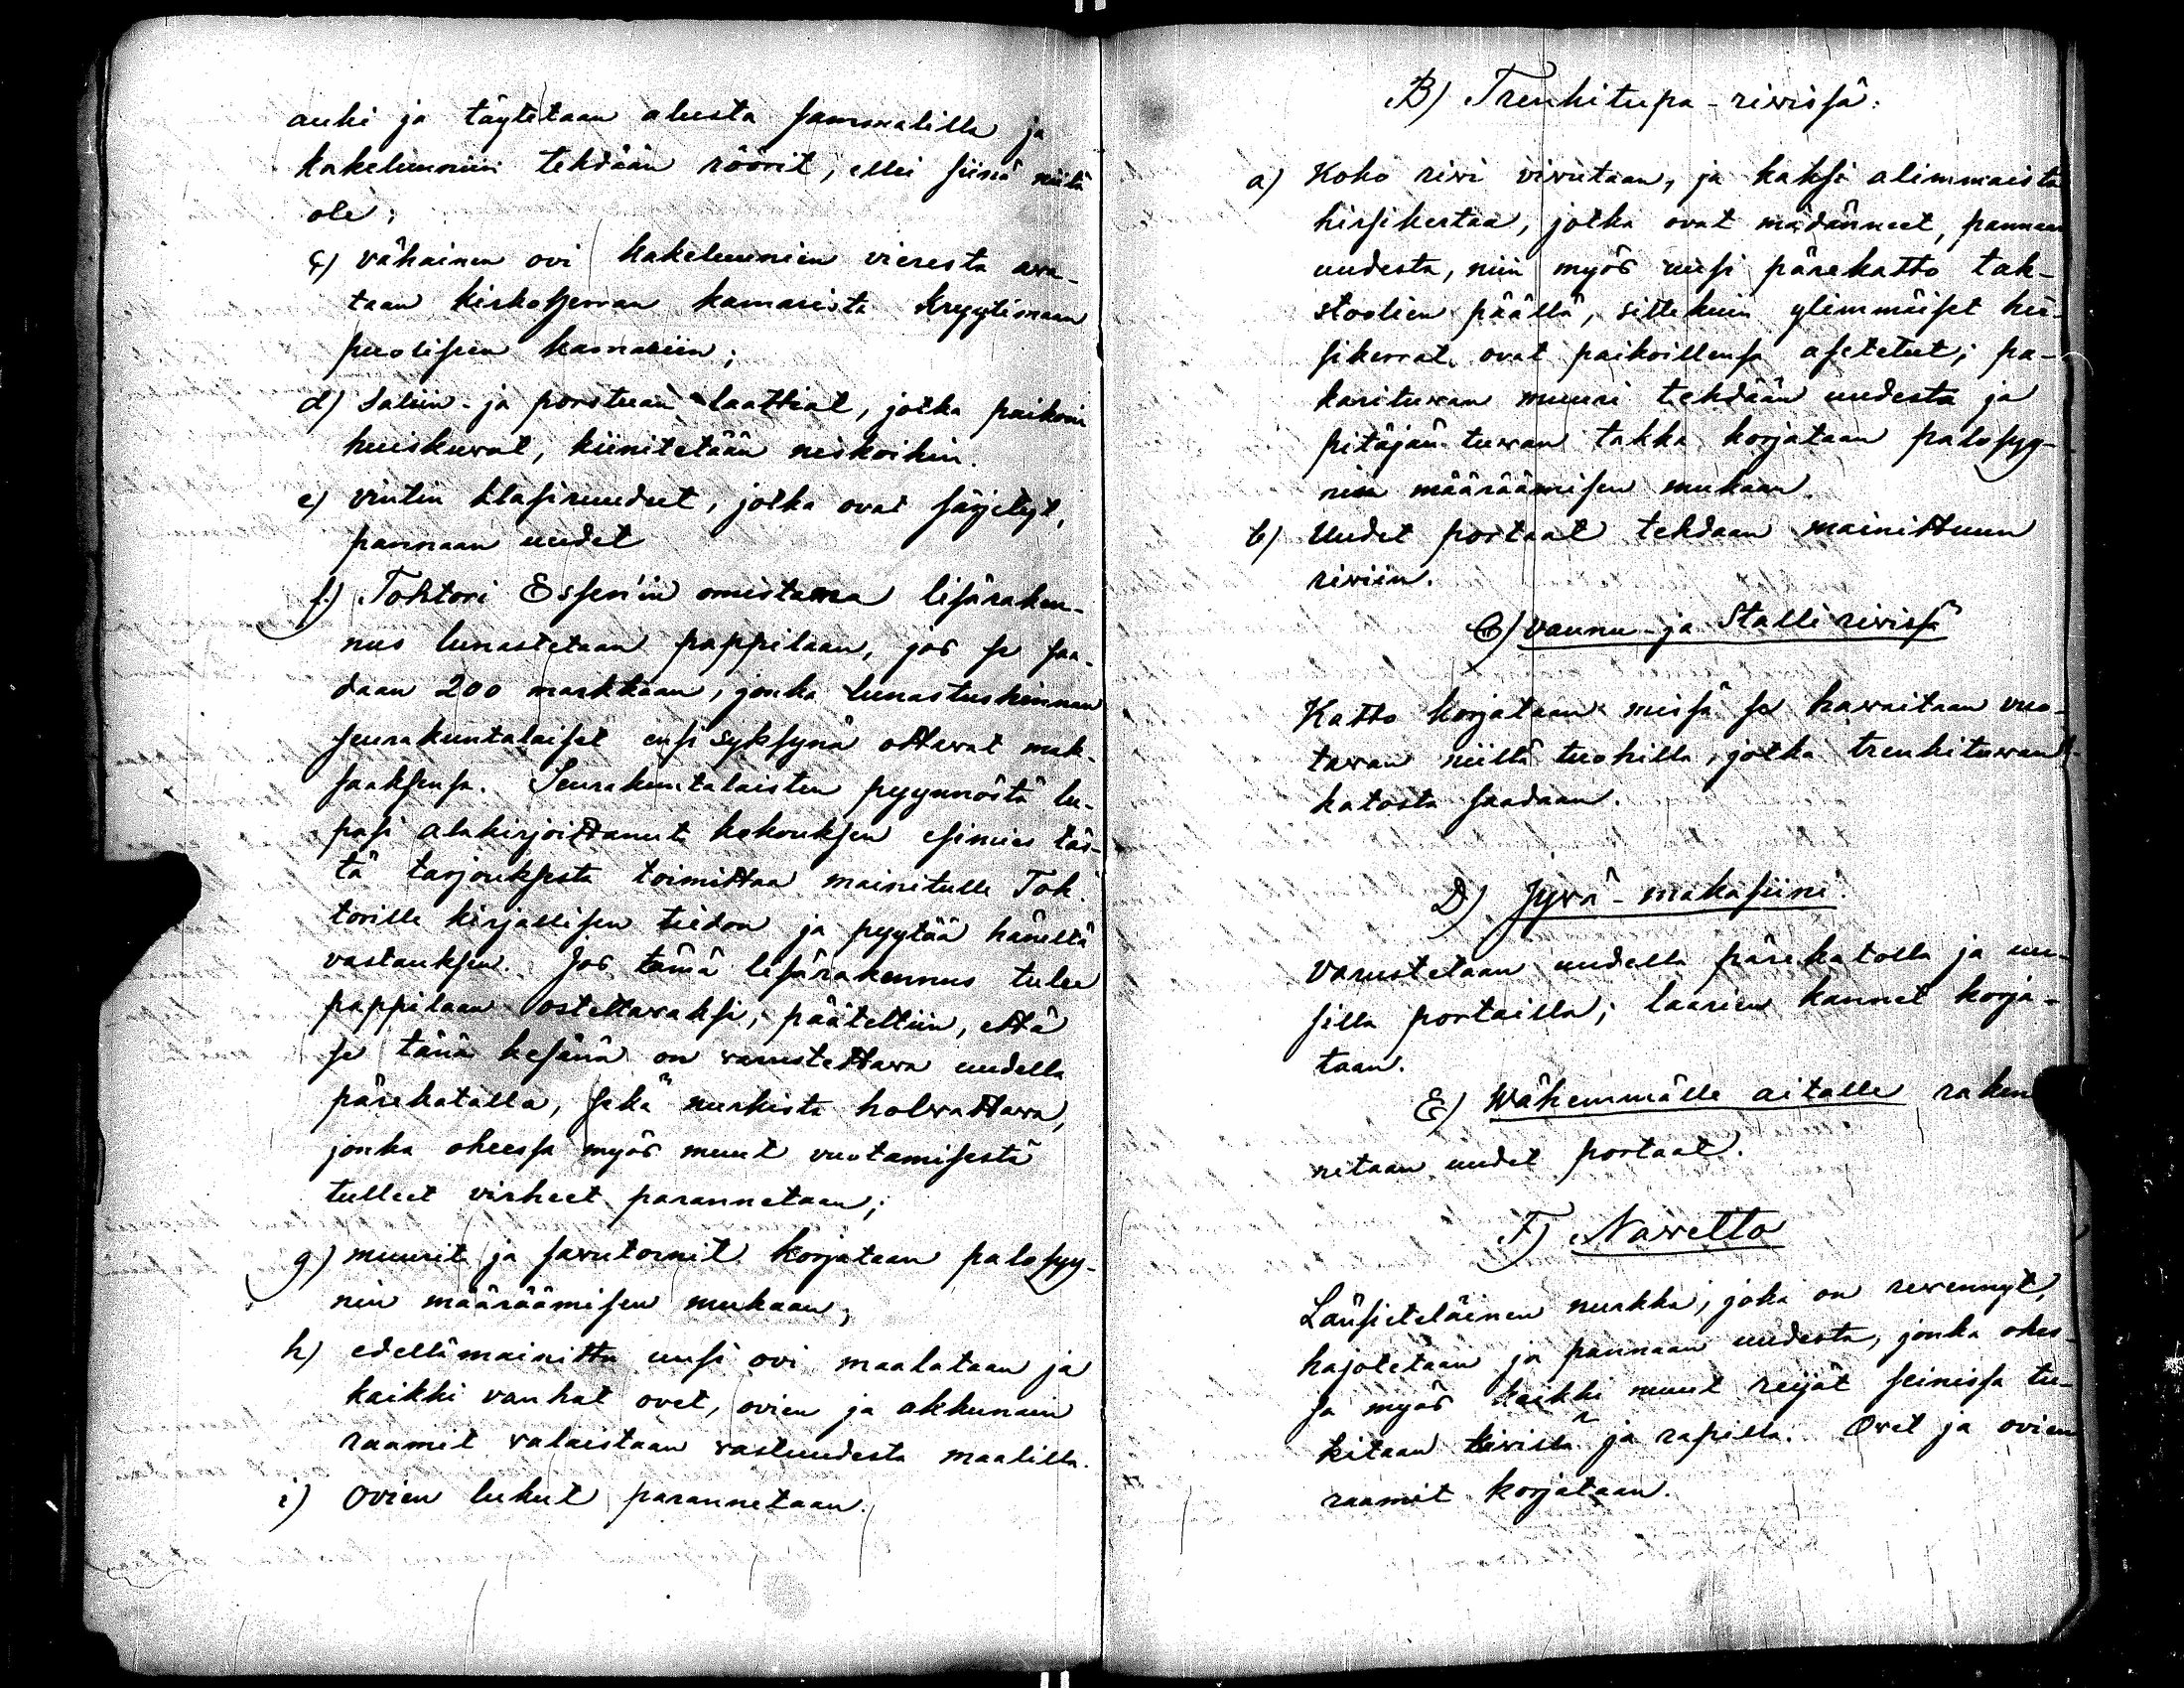 auki ja täytetaan alusta sammalilla ja
kakeluuniin tehdään röörit, ellei siinä niitä
ole;
c) vähäinen ovi kakeluunien vieresta awa-
taan kirkoherran kamarista kryytimaan
puolisen kamariin;
d) Salin- ja porstuan laattiat, jotka paikoin
huiskuvat, kiinitetään niskoihin.
e) vintin klasiruudut, jotka ovat särjetyt,
pannaan uudet
f.) Tohtori Essen'in omistama lisäraken-
nus lunastetaan pappilaan, jos se saa-
daan 200 markkaan, jonka lunastushinnan
seurakuntalaiset ensi syksynä ottavat mak-
saaksensa. Seurakuntalaisten pyynnöstä lu-
pasi alakirjoittanut kokouksen esimies täs-
tä tarjouksesta toimittaa mainitulle Toh-
torille kirjallisen tiedon ja pyytää häneltä
vastauksen. Jos tämä lisärakennus tulee
pappilaan ostettavaksi, päätettiin, että
se tänä kesänä on varustettava uudella
pärekatolla, sekä nurkista holvattava,
jonka oheessa myös muut vuotamisesta
tulleet virheet parannetaan;
g) muurit ja savutornit korjataan palosyy-
nin määräämisen mukaan;
h) edellämainittu uusi ovi maalataan ja
kaikki vanhat ovet, ovien ja akkunain
raamit valaistaan vastuudesta maalilla.
i) Ovien lukut parannetaan.
B) Trenkitupa-rivissä:
a) Koko rivi vivutaan, ja kaksi alimmaista
hirsikertaa, jotka ovat mädänneet, pannaan
uudesta, niin myös uusi pärekatto tak-
stoolien päällä, sittekuin ylimmäiset hir-
sikerrat ovat paikoillensa asetetut; pa-
karituvan muuri tehdään uudesta ja
pitäjän tuwan takka korjataan palosyy-
nin määräämisen mukaan.
b) Uudet portaat tehdaan mainittuun
riviin.
C) vaunu- ja Stalli rivissä
Katto korjataan missä se havaitaan vuo-
tavan niillä tuohilla, jotka trenkituwan
katosta saadaan.
D) Jyvä-makasiini
varustetaan uudella pärekatolla ja uu-
silla portailla; laarien kannet korja-
taan.
E) Wähemmälle aitalle raken
netaan uudet portaat.
F) Navetto
Länsieteläinen nurkka, joka on revennyt,
hajotetaan ja pannaan uudesta, jonka ohes-
sa myös kaikki muut reijät seinissä tu-
kitaan kivillä ja rapilla. Ovet ja ovien
raamit korjataan.